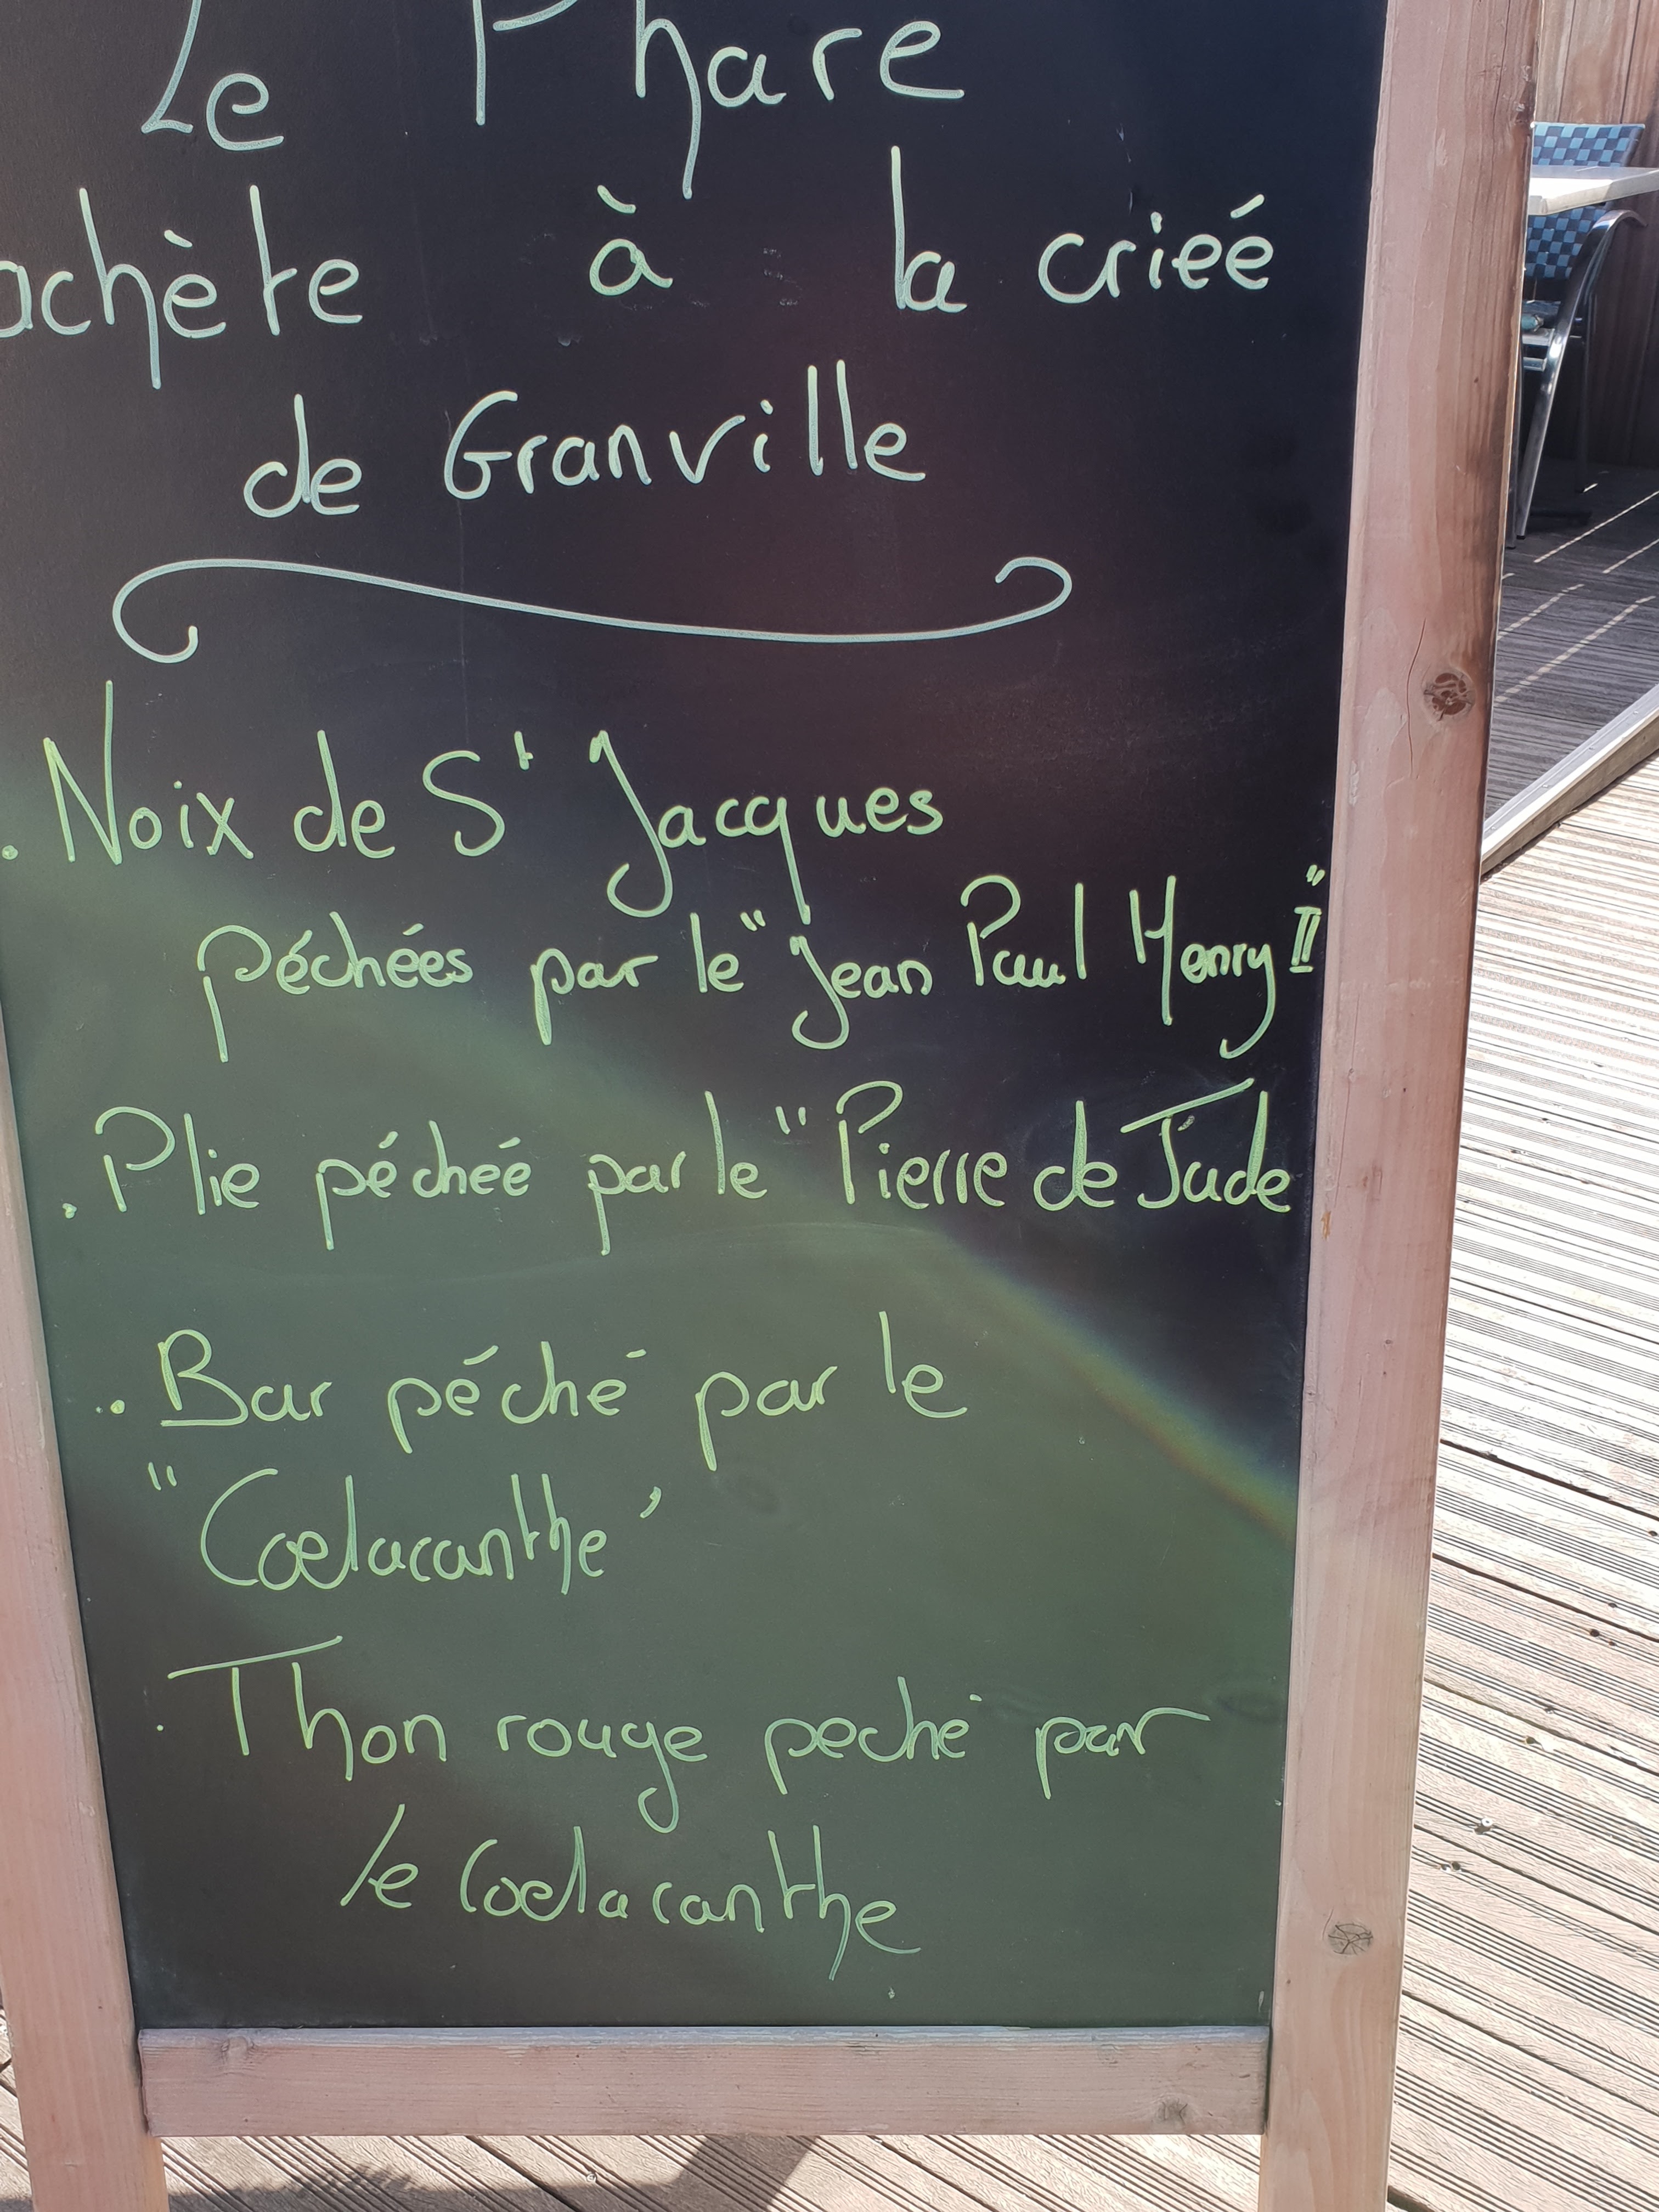 Le Phare
achète à la crieé
de Granville
. Noix de St Jacques
péchées par le "Jean Paul Henry II"
. Plie pécheé par le "Pierre de Jade
.. Bar péché par le
"Coelacanthe'
. Thon rouge peché par
le Coelacanthe